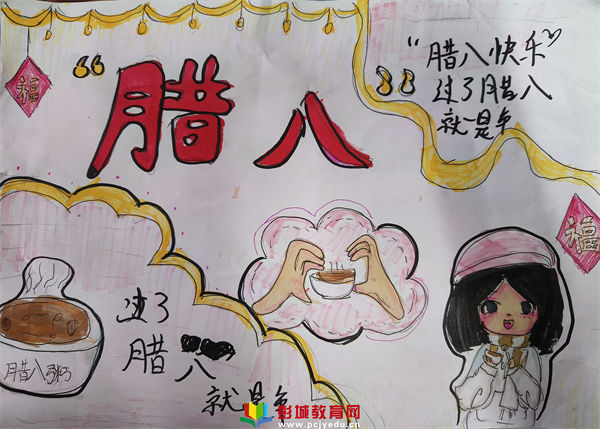 福
“腊八
“腊八快乐”
过了腊八
就是年
福
过了
腊八
就是年
腊八粥
彭城教育网
www.pcjyedu.cn